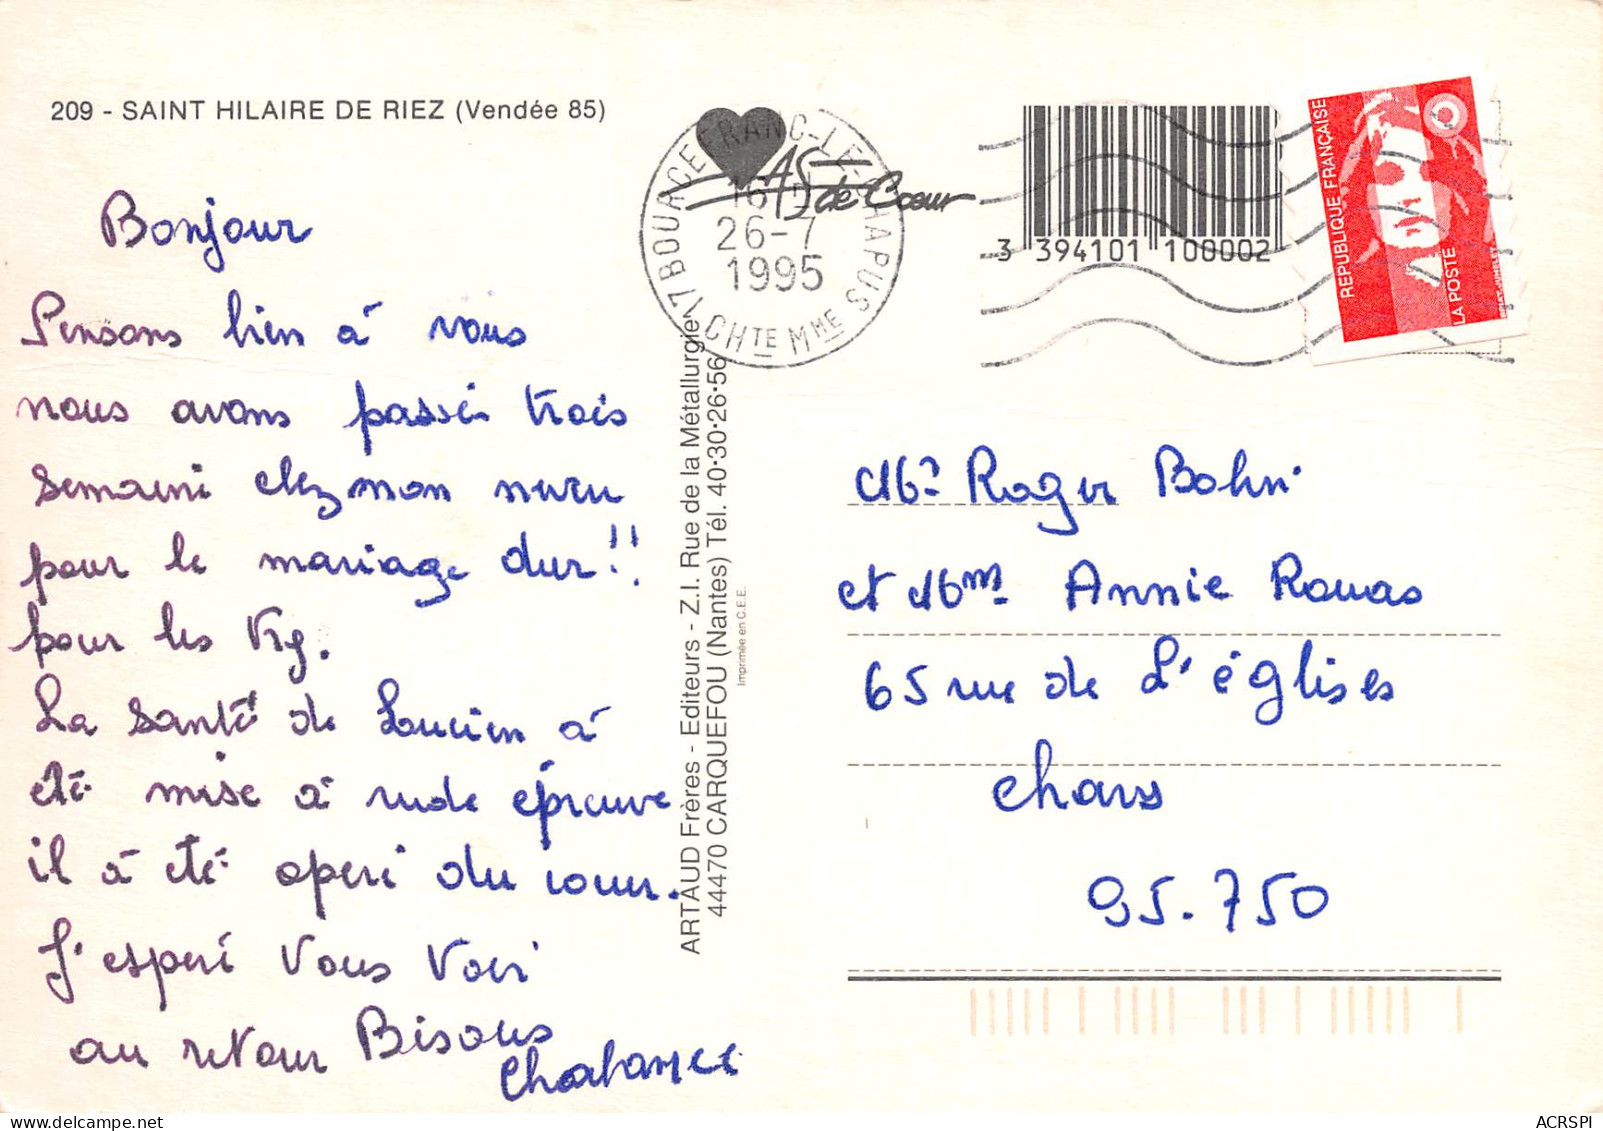 209 - SAINT HILAIRE DE RIEZ (Vendée 85)
17 BOURCEFRANC-LE-CHAPUS
CHTE MME
16 H
26-7
1995
AS de Cœur
3 394101 100002
REPUBLIQUE FRANÇAISE
LA POSTE
Bonjour
Pensons bien à vous
nous avons passés trois
semaine chez mon neveu
pour le mariage dur!!
pour les
La santé de Lucien à
été mise à rude épreuve
il à été operé du coeur.
J'esperé vous voir
au retour Bisous
ARTAUD Frères - Editeurs - Z.I. Rue de la Métallurgie
44470 CARQUEFOU (Nantes) Tél. 40·30·26·56
Imprimée en C.E.E.
Mr Roger Bohn
et Mme Annie Rouas
65 rue de L'églises
Chars
95.750
ACRSPI